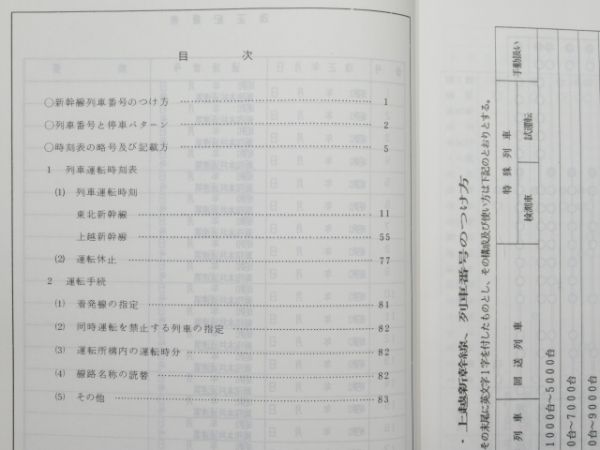 目　次
○新幹線列車番号のつけ方 …… 1
○列車番号と停車パターン …… 2
○時刻表の略号及び記載方 …… 5
1　列車運転時刻表
(1)　列車運転時刻
東北新幹線 …… 11
上越新幹線 …… 55
(2)　運転休止 …… 77
2　運転手続
(1)　着発線の指定 …… 81
(2)　同時運転を禁止する列車の指定 …… 82
(3)　運転所構内の運転時分 …… 82
(4)　線路名称の読替 …… 82
(5)　その他 …… 83
・上越新幹線、列車番号のつけ方
その末尾に英文字1字を付したものとし、その構成及び使い方は下記のとおりとする。
列車
回送列車
特殊列車
検測車
試運転
手動扱い
1000台～5000台
0台～7000台
0台～9000台